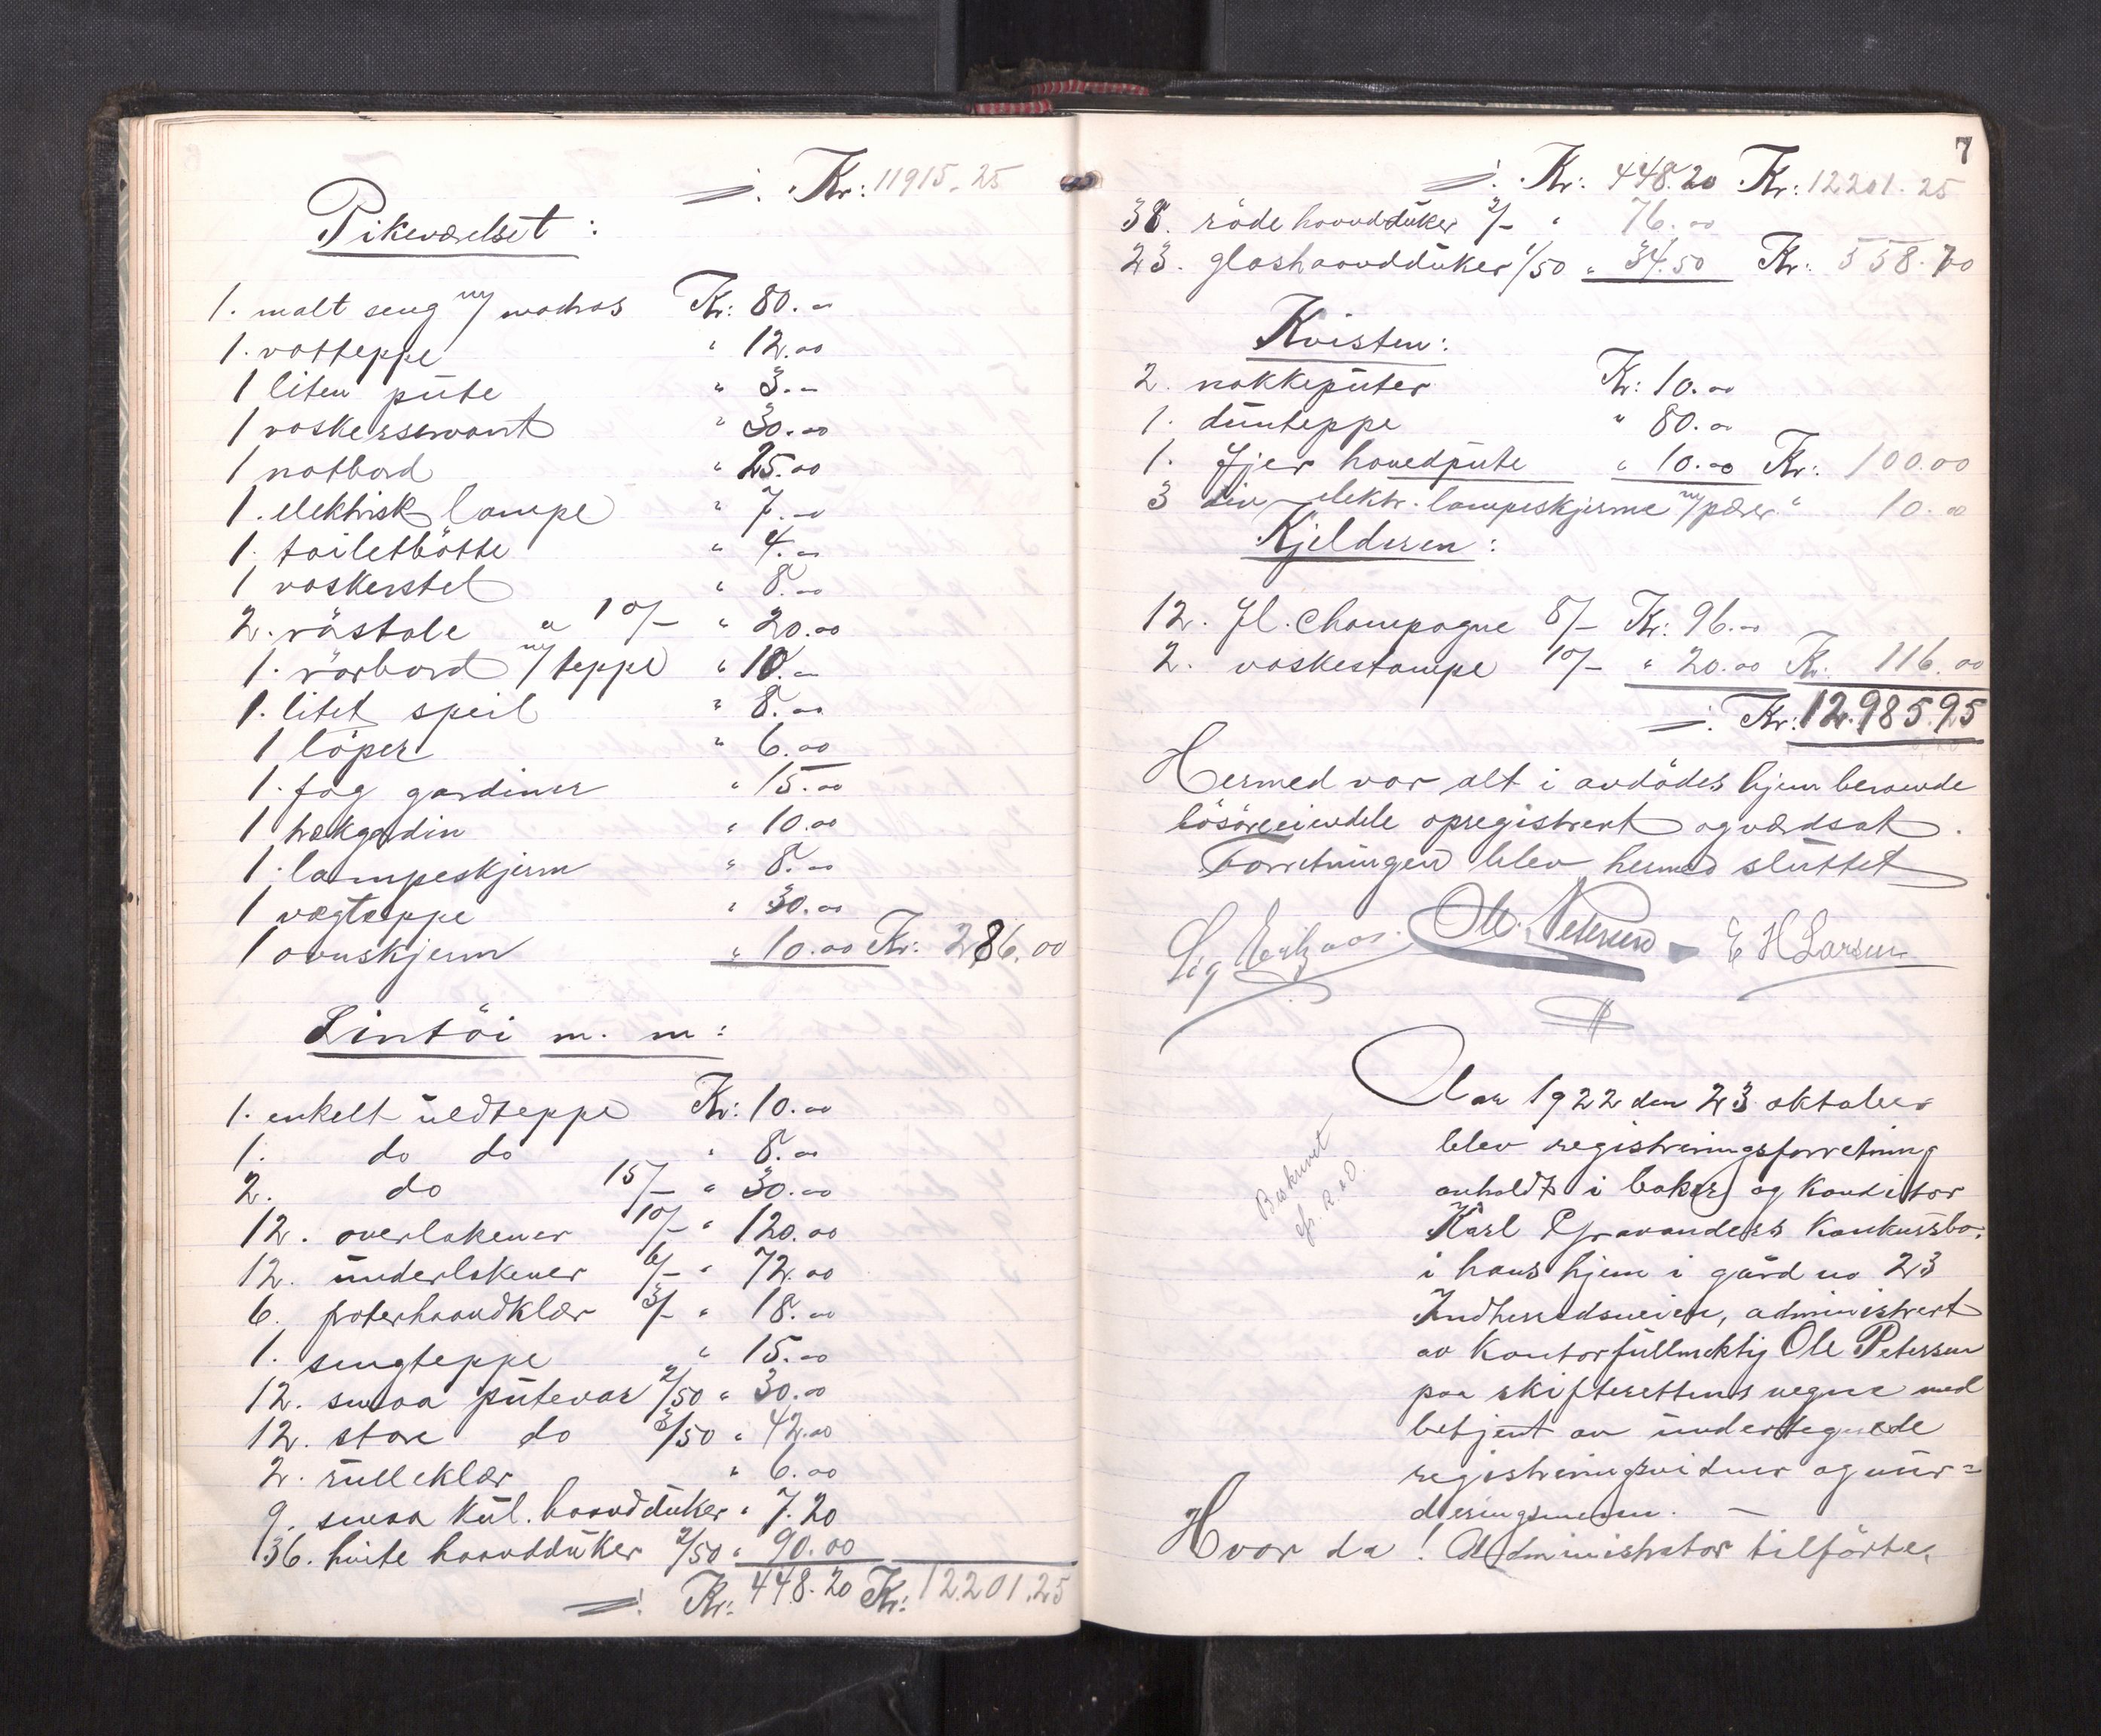 ÷. Kr: 11915.25
Pikeværelset:
1. malt seng m/ madras Kr: 80.-
1. vatteppe " 12.00
1 liten püte " 3.-
1 vaskerservant " 30.00
1 natbord " 25.00
1. elektrisk lampe " 7.-
1. toiletbötte " 4.-
1 vaskerstel " 8.-
2. råstole a 10/- " 20.00
1. rörbord m/ teppe " 10.-
1. litet speil " 8.00
1 löper " 6.00
1. fag gardiner " 15.00
1 trækgardin " 10.00
1. lampeskjerm " 8.-
1 vægteppe " 30.00
1 ovnskjerm " 10.00 Kr: 286.00
Lintöi m. m:
1. enkelt üldteppe Kr: 10.00
1. do do " 8.00
2. do 15/- " 30.00
12. overlakener 10/- " 120.00
12. ünderlakener 6/- " 72.00
6. froterhaandklær 3/- " 18.00
1. sengteppe " 15.00
12. smaa pütevar 2/50 " 30.00
12. store do 3/50 " 42.00
2. rülleklær " 6.00
9. smaa kül. haandduker " 7.20
36. hvite haanddüker 2/50 " 90.00
÷ Kr: 448.20 Kr: 12.201.25
7
÷. Kr: 448.20 Kr: 12201.25
38. röde haanddüker 2/- " 76.00
23. glashaanddüker 1/50 " 34.50 Kr: 558.70
Kvisten:
2. nakkepüter Kr: 10.00
1. dünteppe " 80.00
1. fjer hovedpüte " 10.00 Kr: 100.00
3 div elektr. lampeskjerme m/ pærer " 10.00
Kjelderen:
12. fl. Champagne 8/- Kr: 96.-
2. vaskestampe 10/- " 20.00 Kr. 116.00
÷. Kr: 12.985.95
Hermed var alt i avdödes hjem beroende
lösöreeiendele opregistrert og værdsat.
Forretningen blev hermed slüttet
Sig Ole Petersen - E H Larsen
Aar 1922 den 23 oktober
blev registreringsforretning
anholdt i baker og konditor
Karl Gravanders konkursbo.
i hans hjem i gård no 23
Indherredsveien, administrert
av kontorfüllmektig Ole Petersen
paa skifterettens vegne med
betjent av ündertegnede
registreringsvidner og vür=
deringsmenn. —
Beskrevet
Hvor da! Administrator tilförte,